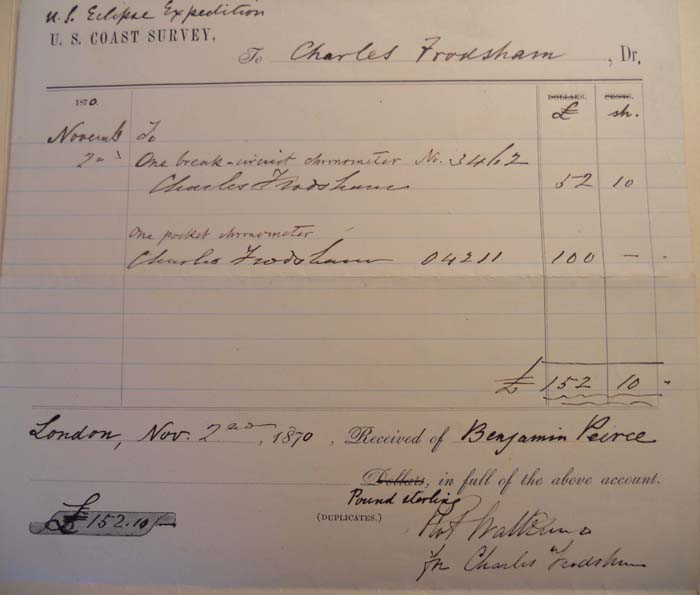 U.S. Eclipse Expedition
U. S. COAST SURVEY,
To Charles Frodsham, Dr.
1870. DOLLARS. CENTS.
£ sh.
Novemb To
2nd One break-circuit chronometer No. 3462
Charles Frodsham 52 10
One pocket chronometer
Charles Frodsham 04211 100 —
£ 152 10
London, Nov. 2nd, 1870, Received of Benjamin Peirce
Dollars, in full of the above account.
Pound sterling
£152.10/-
(DUPLICATES.)
for Charles Frodsham